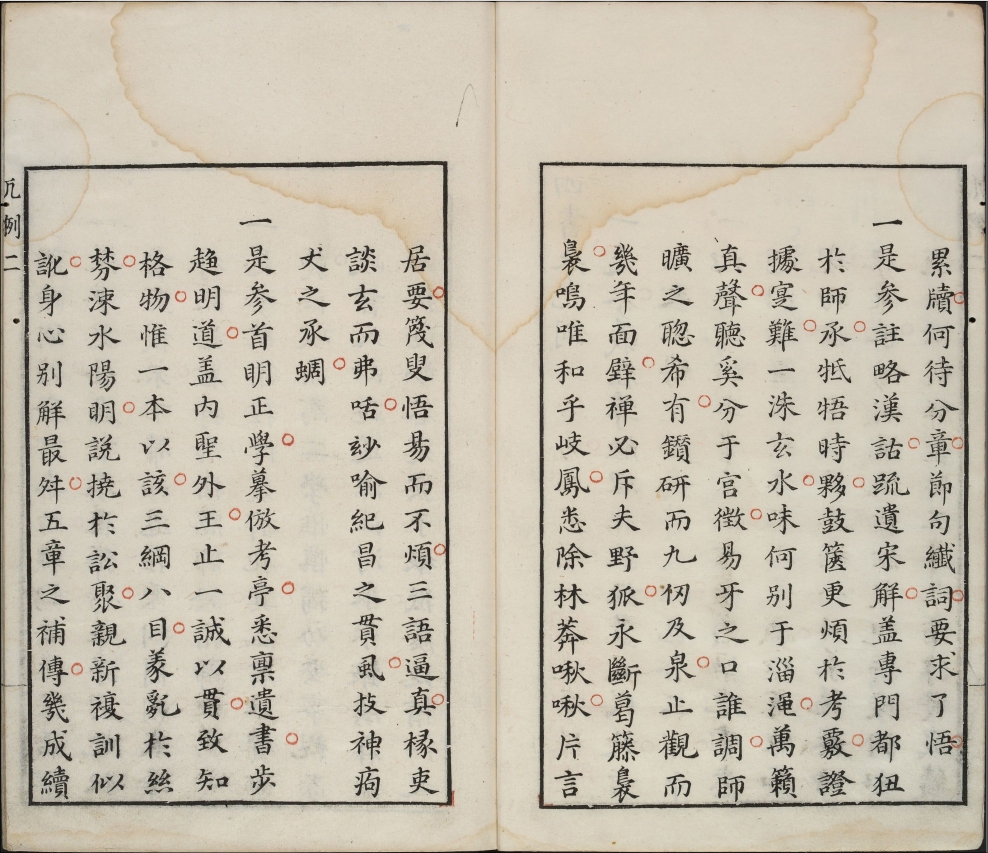 累牘何待分章節句纎詞要求了悟
一是參註略漢詁䟽遺宋解盖專門都狃
於師承牴牾時夥鼓篋更煩於考覈證
據寔難一洙玄水味何别于淄渑萬籟
真聲聴奚分于宮徵易牙之口誰調師
曠之聦希有鑚研而九仭及泉止觀而
幾年面壁禅必斥夫野狐永斷葛籐裊
裊鳴唯和乎岐鳳悉除林莽啾啾片言
居要箋叟悟易而不煩三語逼真椽吏
談玄而弗咶玅喻紀昌之貫虱技神痀
丈之承蜩
一是參首明正學摹倣考亭悉禀遺書歩
趋明道盖内聖外王止一誠以貫致知
格物惟一本以該三綱八目羕亂於絲
棼涑水陽明說撓於訟聚親新複訓似
訛身心别解最舛五章之補傳幾成續
凡例 二